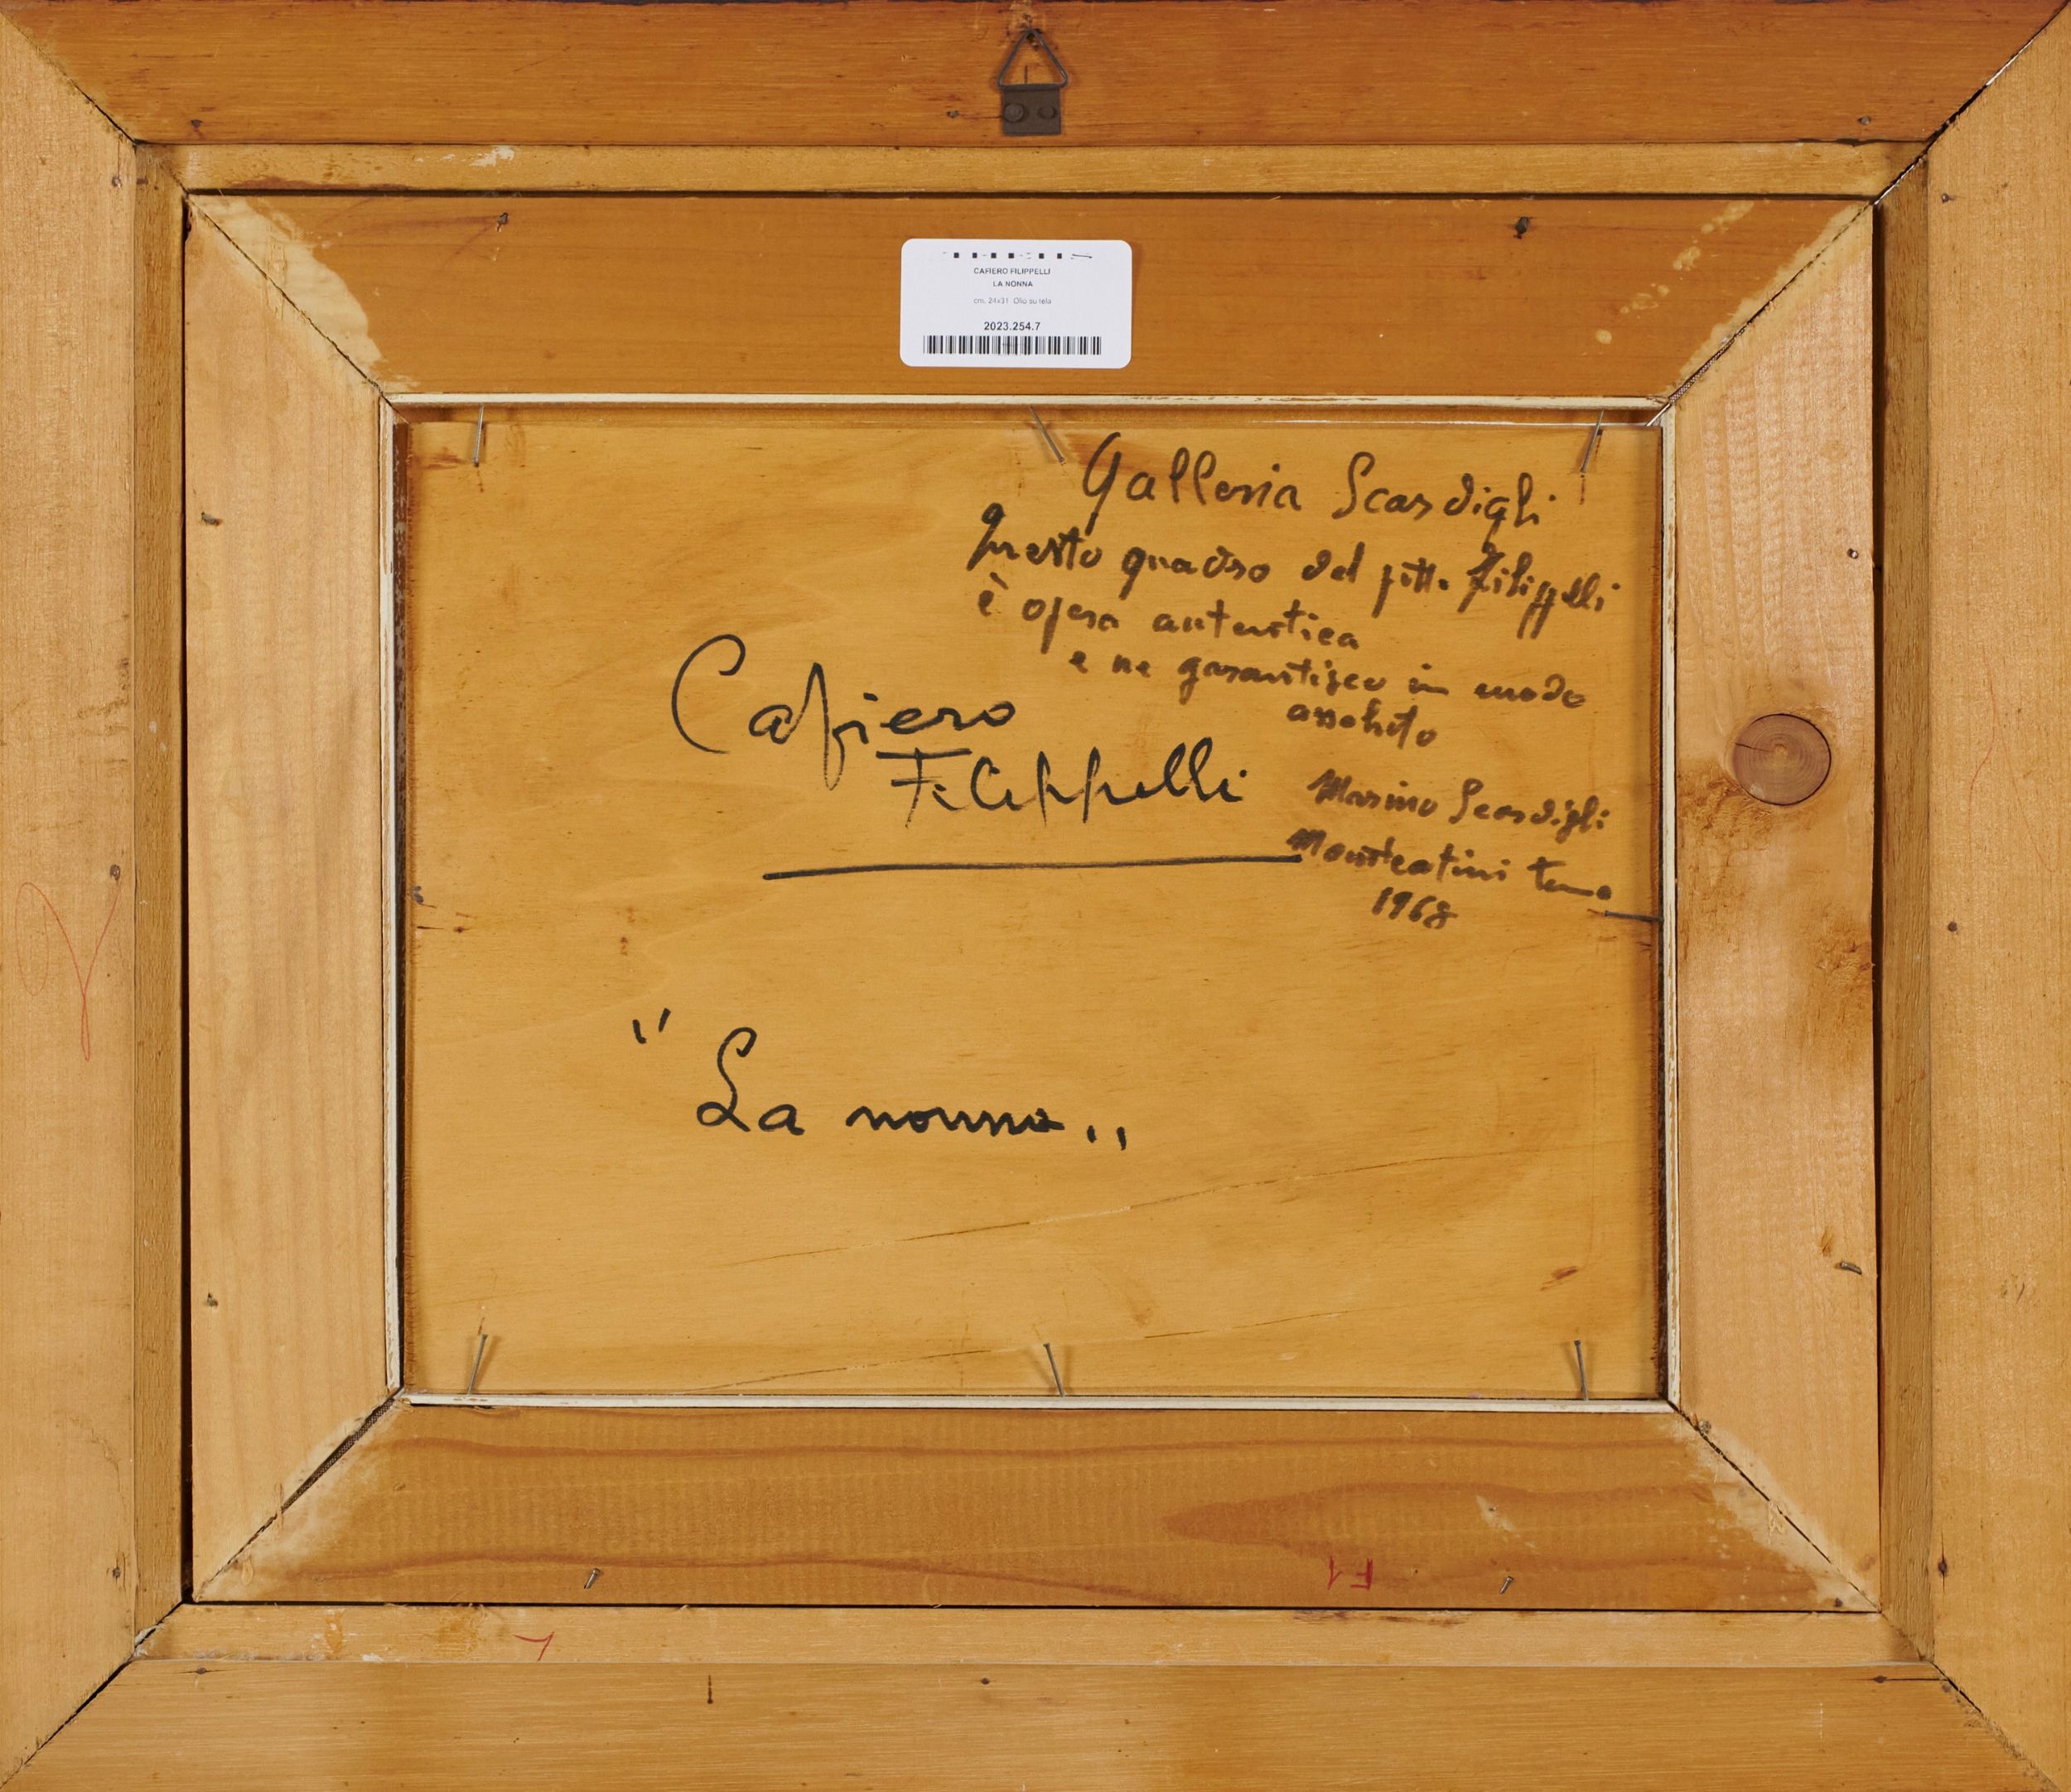 CAFIERO FILIPPELLI
LA NONNA
cm. 24x31 Olio su tela
2023.254.7
Galleria Scardigli
Questo quadro del pitt. Filippelli
è opera autentica
e ne garantisco in modo
assoluto
Marino Scardigli
Montecatini
1968
Cafiero
Filippelli
" La nonna "
F1